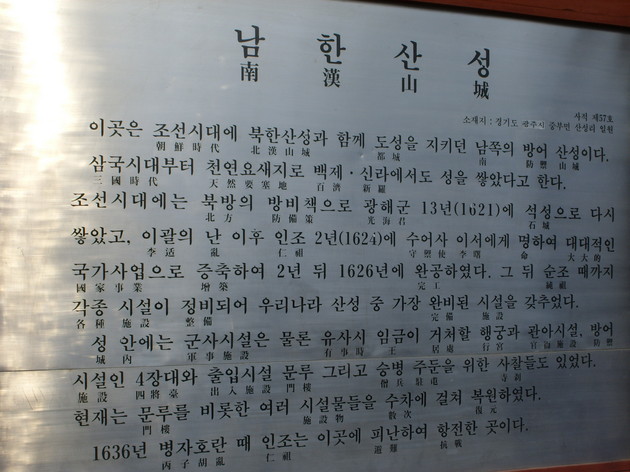 남 한 산 성
南 漢 山 城
사적 제57호
소재지 : 경기도 광주시 중부면 산성리 일원
이곳은 조선시대에 북한산성과 함께 도성을 지키던 남쪽의 방어 산성이다.
朝鮮時代 北漢山城 都城 南 防禦 山城
삼국시대부터 천연요새지로 백제·신라에서도 성을 쌓았다고 한다.
三國時代 天然要塞地 百濟 新羅
조선시대에는 북방의 방비책으로 광해군 13년(1621)에 석성으로 다시
北方 防備策 光海君 石城
쌓았고, 이괄의 난 이후 인조 2년(1624)에 수어사 이서에게 명하여 대대적인
李适 亂 仁祖 守禦使 李曙 命 大大的
국가사업으로 증축하여 2년 뒤 1626년에 완공하였다. 그 뒤 순조 때까지
國家事業 增築 完工 純祖
각종 시설이 정비되어 우리나라 산성 중 가장 완비된 시설을 갖추었다.
各種 施設 整備 完備 施設
성 안에는 군사시설은 물론 유사시 임금이 거처할 행궁과 관아시설, 방어
城 內 軍事施設 有事時 王 居處 行宮 官衙施設 防禦
시설인 4장대와 출입시설 문루 그리고 승병 주둔을 위한 사찰들도 있었다.
施設 四將臺 出入施設 門樓 僧兵 駐屯 寺刹
현재는 문루를 비롯한 여러 시설물들을 수차에 걸쳐 복원하였다.
門樓 施設物 數次 復元
1636년 병자호란 때 인조는 이곳에 피난하여 항전한 곳이다.
丙子胡亂 仁祖 避難 抗戰